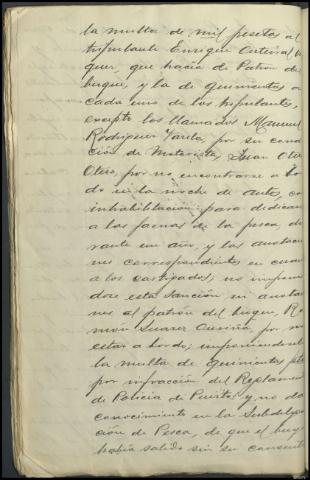 la multa de mil pesetas al
tripulante Enrique
quer, que hacía de Patrón del
buque, y la de quinientas a
cada uno de los tripulantes,
excepto los llamados Manuel
Rodriguez Varela, por su condi
ción de Motorista, Juan Oter
Otero, por no encontrarse a bor
do en la noche de autos, con
inhabilitación para dedicarse
a las faenas de la pesca, du
rante un año, y las anotacio
nes correspondientes en cuan
a los castigados; no imponien
dose esta sanción en anotacio
nes al patrón del buque, Ra
món Suarez por no
estar a bordo; imponiendosele
la multa de quinientas ptas
por infracción del Reglamento
de Policía de Puertos, y no dar
conocimiento en la Subdelega
ción de Pesca, de que el buque
había salido sin su consenti